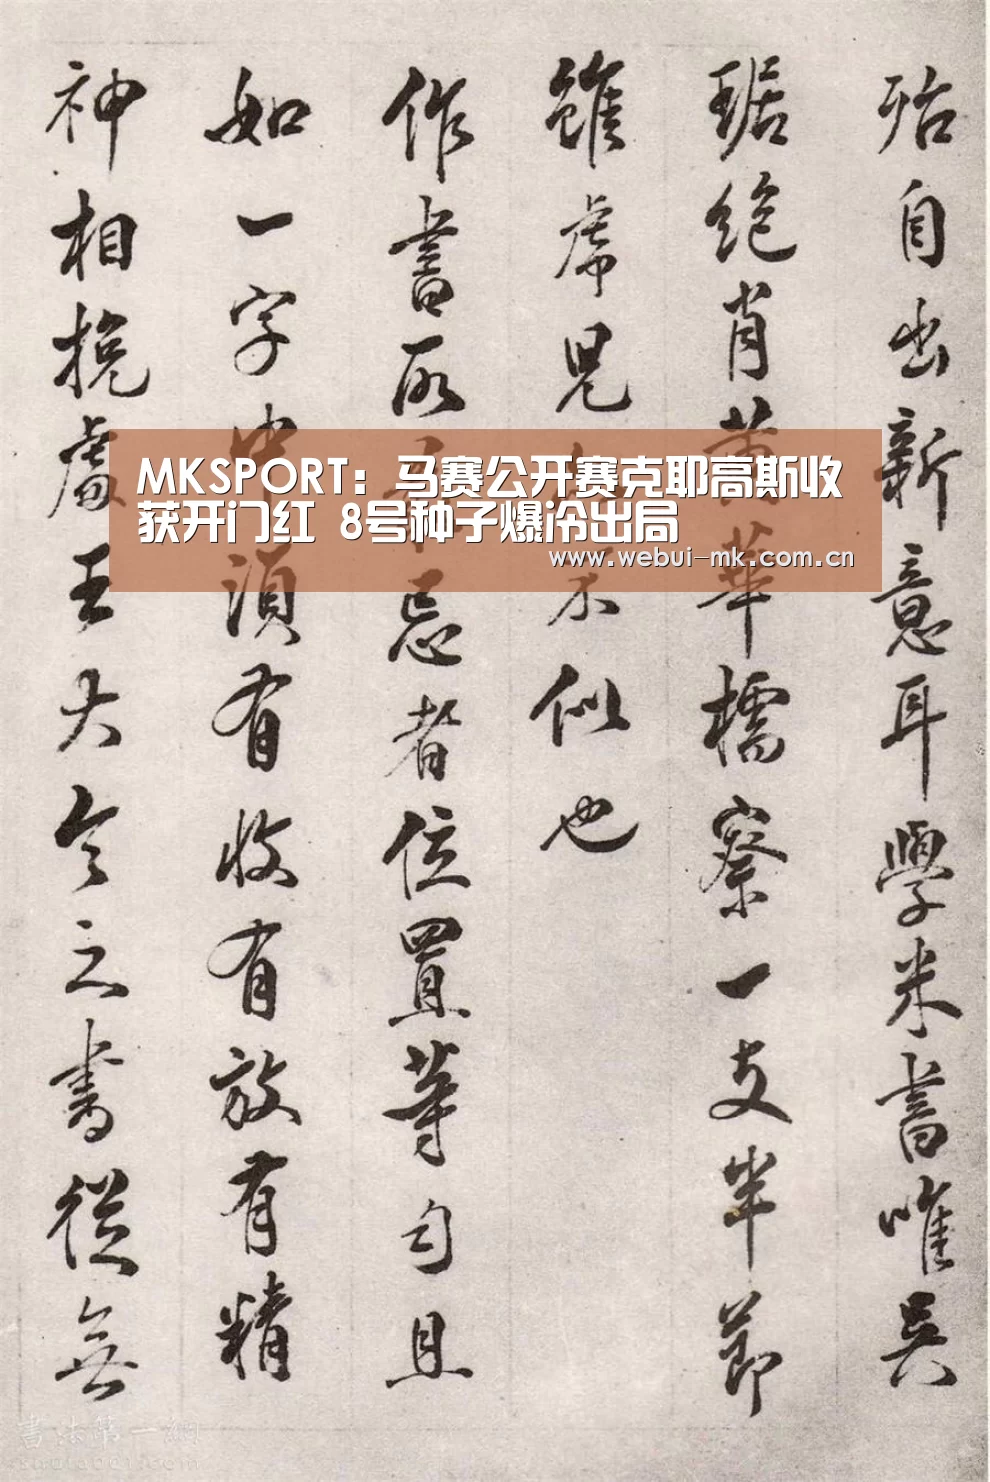 殆自出新意耳學米書唯吳
琚絕肖黃華樗寮一支半節
雖虎兒
不似也
作書所
忌者位置等勻且
如一字中須有收有放有精
神相挽處王大令之書從無
MKSPORT：马赛公开赛克耶高斯收
获开门红 8号种子爆冷出局
www.webui-mk.com.cn
书法第一网